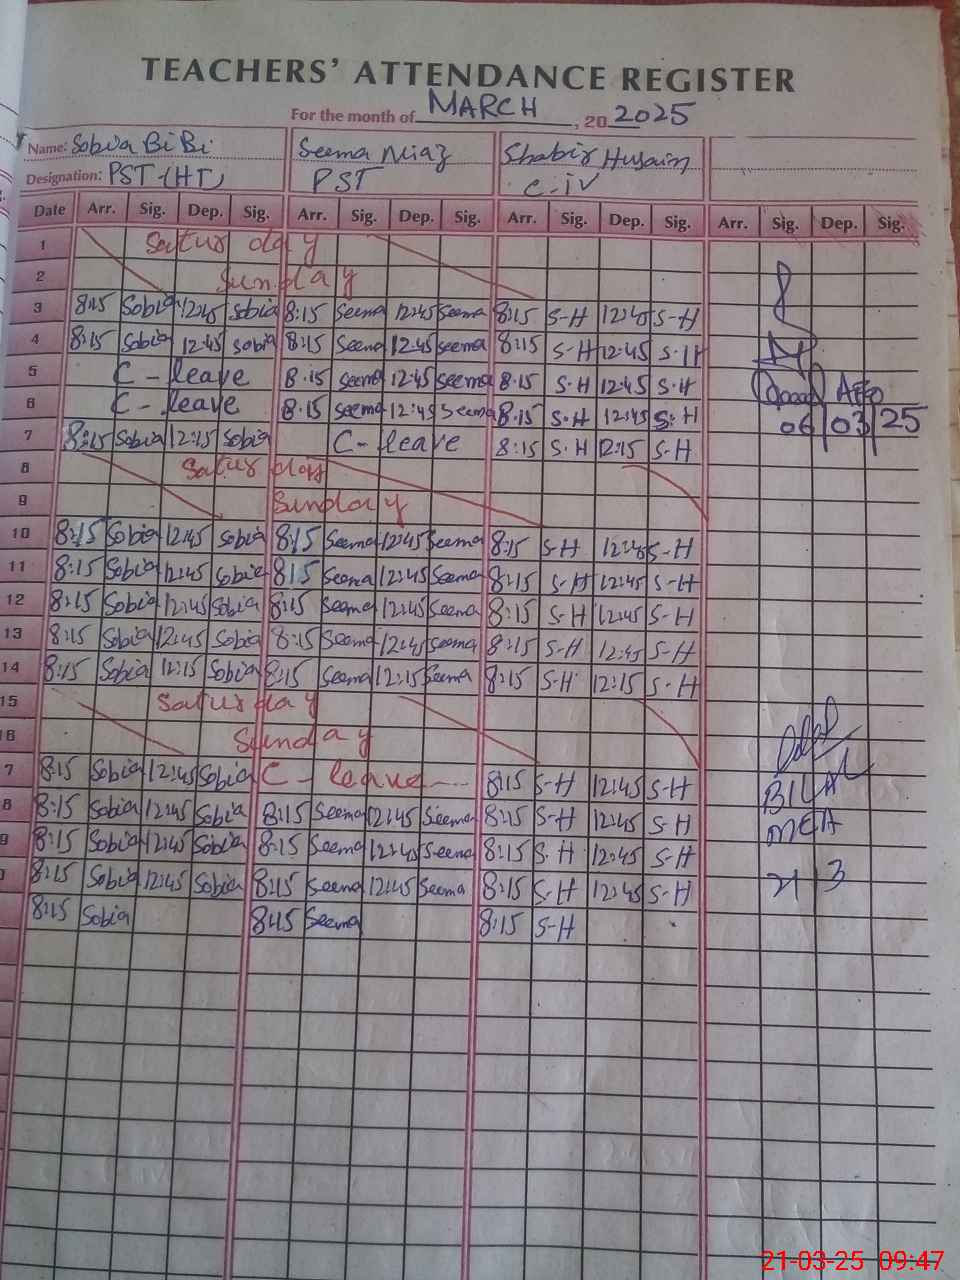 TEACHERS' ATTENDANCE REGISTER
For the month of MARCH, 20 2025
Name: Sobia BiBi Seema Niaz Shabir Husain
Designation: PST (HT) PST C-iv
Date Arr. Sig. Dep. Sig. Arr. Sig. Dep. Sig. Arr. Sig. Dep. Sig. Arr. Sig. Dep. Sig.
1 Saturday
2 Sunday
3 8:15 Sobia 12:45 Sobia 8:15 Seema 12:45 Seema 8:15 S-H 12:45 S-H
4 8:15 Sobia 12:45 Sobia 8:15 Seema 12:45 Seema 8:15 S-H 12:45 S-H
5 C-leave 8:15 Seema 12:45 Seema 8:15 S-H 12:45 S-H
6 C-leave 8:15 Seema 12:45 Seema 8:15 S-H 12:45 S-H 06/03/25
7 8:15 Sobia 12:15 Sobia C-leave 8:15 S-H 12:15 S-H
8 Saturday
9 Sunday
10 8:15 Sobia 12:45 Sobia 8:15 Seema 12:45 Seema 8:15 S-H 12:45 S-H
11 8:15 Sobia 12:45 Sobia 815 Seema 12:45 Seema 8:15 S-H 12:45 S-H
12 8:15 Sobia 12:45 Sobia 8:15 Seema 12:45 Seema 8:15 S-H 12:45 S-H
13 8:15 Sobia 12:45 Sobia 8:15 Seema 12:45 Seema 8:15 S-H 12:45 S-H
14 8:15 Sobia 12:15 Sobia 8:15 Seema 12:15 Seema 8:15 S-H 12:15 S-H
15 Saturday
16 Sunday
7 8:15 Sobia 12:45 Sobia C-leave 8:15 S-H 12:45 S-H BILAL
8 8:15 Sobia 12:45 Sobia 8:15 Seema 12:45 Seema 8:15 S-H 12:45 S-H MEA
9 8:15 Sobia 12:45 Sobia 8:15 Seema 12:45 Seema 8:15 S-H 12:45 S-H
8:15 Sobia 12:45 Sobia 8:15 Seema 12:45 Seema 8:15 S-H 12:45 S-H 21/3
8:15 Sobia 8:15 Seema 8:15 S-H
21-03-25 09:47